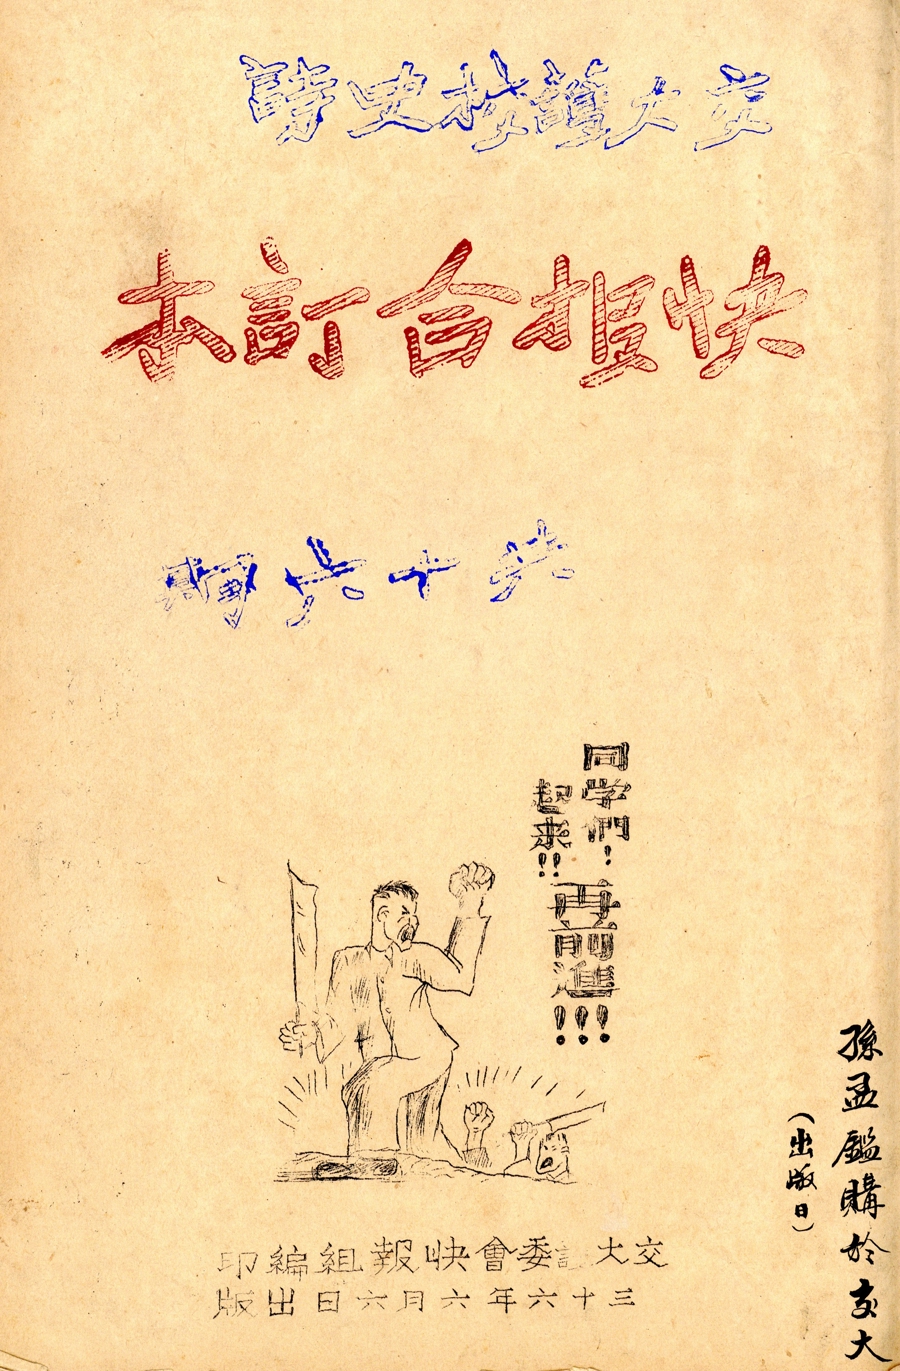 交大護校史詩
快报合訂本
共十六期
同学們！
起来！！
再前進！！！
交大護委會快報組編印
三十六年六月六日出版
孫孟鑑購於交大
（出版日）